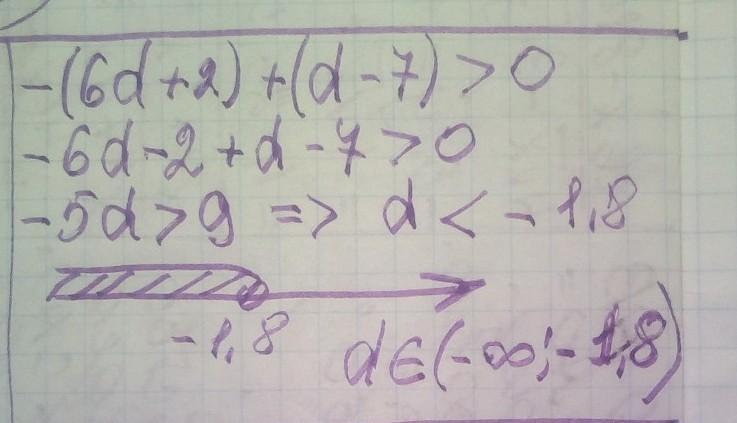 -(6d+2)+(d-7)>0
-6d-2+d-7>0
-5d>9 => d<-1,8
-1,8
d∈(-∞;-1,8)